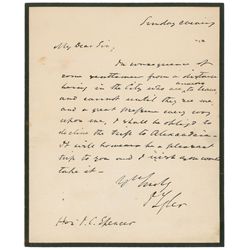 Sunday evening
My Dear Sir,
In consequence of
some gentlemen from a distance
being in the City who are anxious to leave
and cannot until they see me,
and a great pressure every way
upon me, I shall be obliged to
decline the trip to Alexandria.
It will however be a pleasant
trip to you and I wish you would
take it—
Yrs truly
J Tyler
Hon: J. C. Spencer